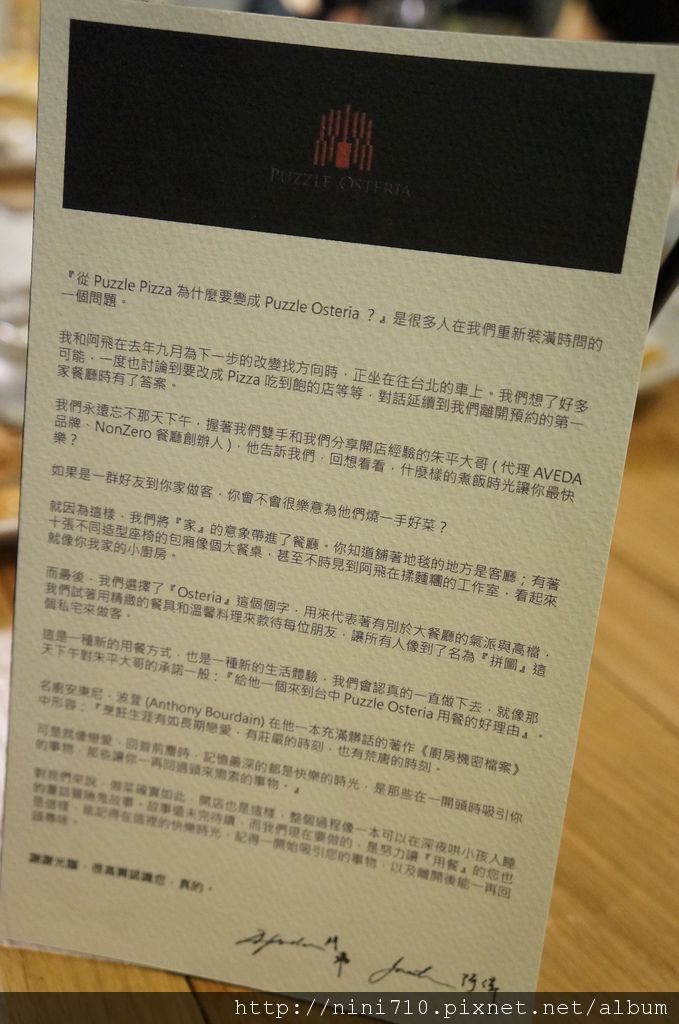 PUZZLE OSTERIA
『從 Puzzle Pizza 為什麼要變成 Puzzle Osteria ？』是很多人在我們重新裝潢時問的
一個問題。
我和阿飛在去年九月為下一步的改變找方向時，正坐在往台北的車上。我們想了好多
可能，一度也討論到要改成 Pizza 吃到飽的店等等，對話延續到我們離開預約的第一
家餐廳時有了答案。
我們永遠忘不那天下午，握著我們雙手和我們分享開店經驗的朱平大哥 ( 代理 AVEDA
品牌、NonZero 餐廳創辦人 )，他告訴我們，回想看看，什麼樣的煮飯時光讓你最快
樂？
如果是一群好友到你家做客，你會不會很樂意為他們燒一手好菜？
就因為這樣、我們將『家』的意象帶進了餐廳。你知道舖著地毯的地方是客廳；有著
十張不同造型座椅的包廂像個大餐桌，甚至不時見到阿飛在揉麵糰的工作室，看起來
就像你我家的小廚房。
而最後，我們選擇了『Osteria』這個個字，用來代表著有別於大餐廳的氣派與高檔，
我們試著用精緻的餐具和溫馨料理來款待每位朋友，讓所有人像到了名為『拼圖』這
個私宅來做客。
這是一種新的用餐方式，也是一種新的生活體驗，我們會認真的一直做下去，就像那
天下午對朱平大哥的承諾一般：『給他一個來到台中 Puzzle Osteria 用餐的好理由』。
名廚安東尼．波登 (Anthony Bourdain) 在他一本充滿髒話的著作《廚房機密檔案》
中形容：『烹飪生涯有如長期戀愛，有莊嚴的時刻，也有荒唐的時刻。
可是就像戀愛，回首前塵時，記憶最深的都是快樂的時光，是那些在一開頭時吸引你
的事物，那些讓你一再回過頭來需索的事物。』
對我們來說，做菜確實如此，開店也是這樣，整個過程像一本可以在深夜哄小孩入睡
的童話冒險鬼故事。故事還未完待續，而我們現在要做的，是努力讓『用餐』的您也
是這樣，能記得在這裡的快樂時光，記得一開始吸引您的事物，以及離開後能一再回
頭尋味。
謝謝光臨，很高興認識您，真的。
http://nini710.pixnet.net/album